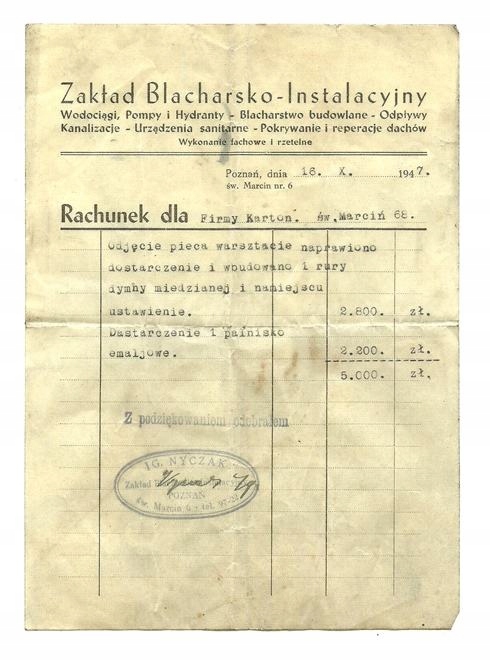 Zakład Blacharsko-Instalacyjny
Wodociągi, Pompy i Hydranty - Blacharstwo budowlane - Odpływy
Kanalizacje - Urządzenia sanitarne - Pokrywanie i reperacje dachów
Wykonanie fachowe i rzetelne
Poznań, dnia 16. X. 1947.
św. Marcin nr. 6
Rachunek dla Firmy Karton. św. Marcin 68.
Odjęcie pieca warsztacie naprawiono
dostarczenie i wbudowano 1 rury
dymny miedzianej i namiejscu
ustawienie. 2.800. zł.
Dastarczenie 1 palnisko
emaljowe. 2.200. zł.
5.000. zł.
Z podziękowaniem odebrałem
IG. NYCZAK
Zakład
POZNAŃ
św. Marcin 6 - tel.